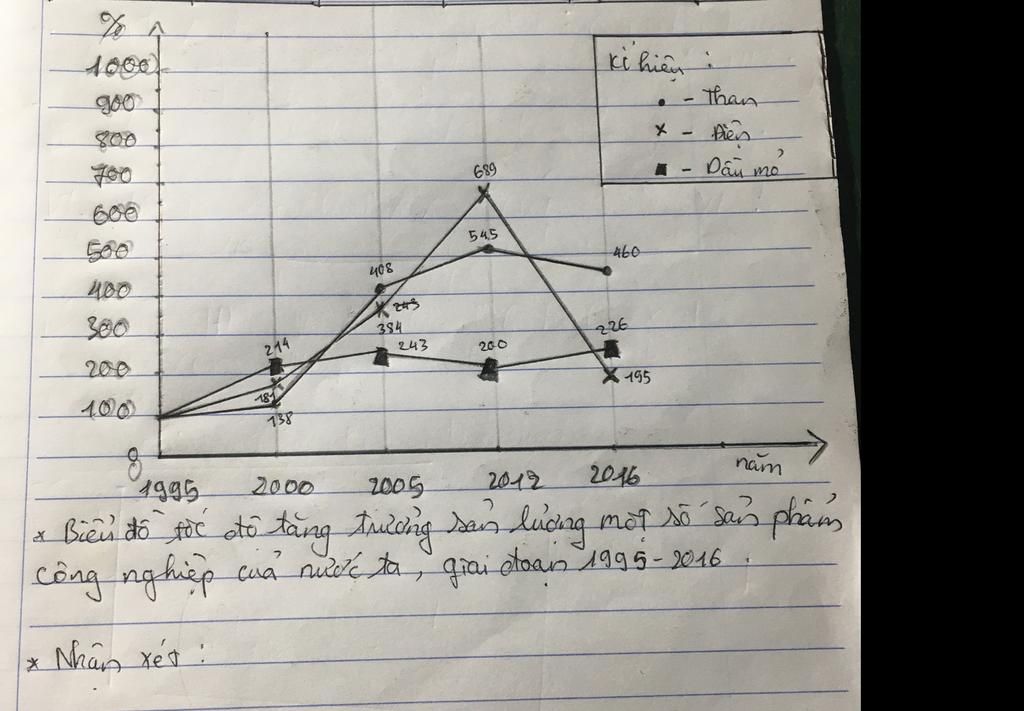 %
1000
900
800
700
600
500
400
300
200
100
0
Kí hiệu :
- Than
- Điện
- Dầu mỏ
689
545
460
408
243
384
243
214
181
138
200
226
195
1995 2000 2005 2012 2016 năm
* Biểu đồ tốc độ tăng trưởng sản lượng một số sản phẩm
công nghiệp của nước ta, giai đoạn 1995-2016.
* Nhận xét :